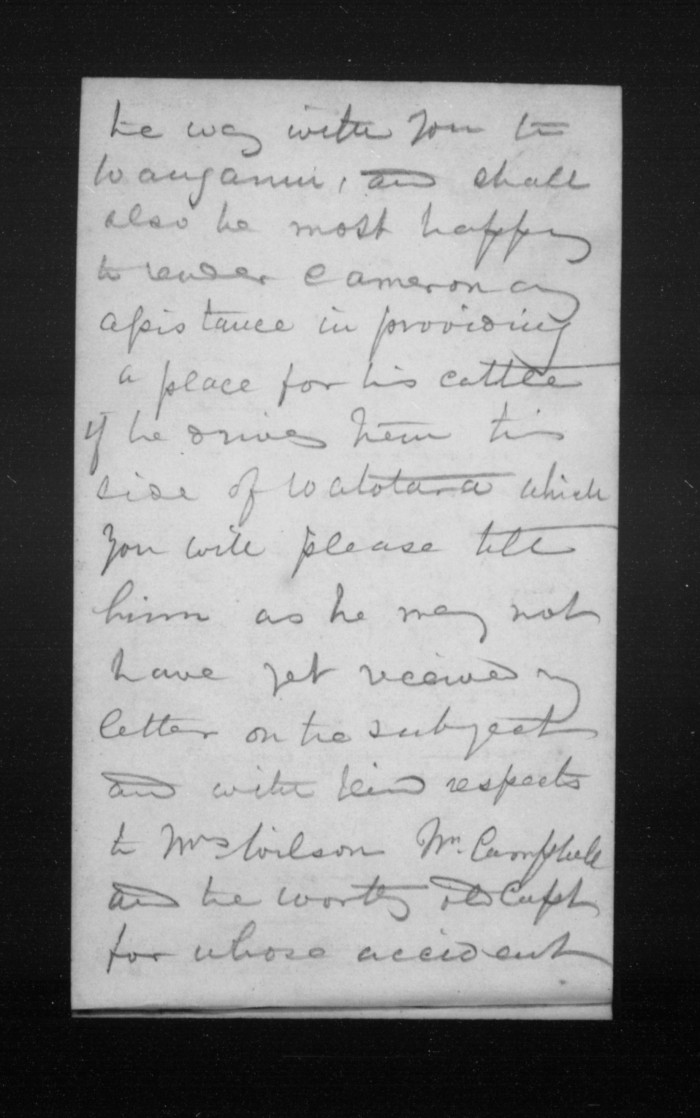 the way with you to
Wanganui, and shall
also be most happy
to render Cameron any
assistance in providing
a place for his cattle
if he drives them this
side of Waitotara which
you will please tell
him as he may not
have yet received my
letter on the subject
and with kind respects
to Mrs Wilson Mr. Campbell
and the worthy old Capt
for whose accident